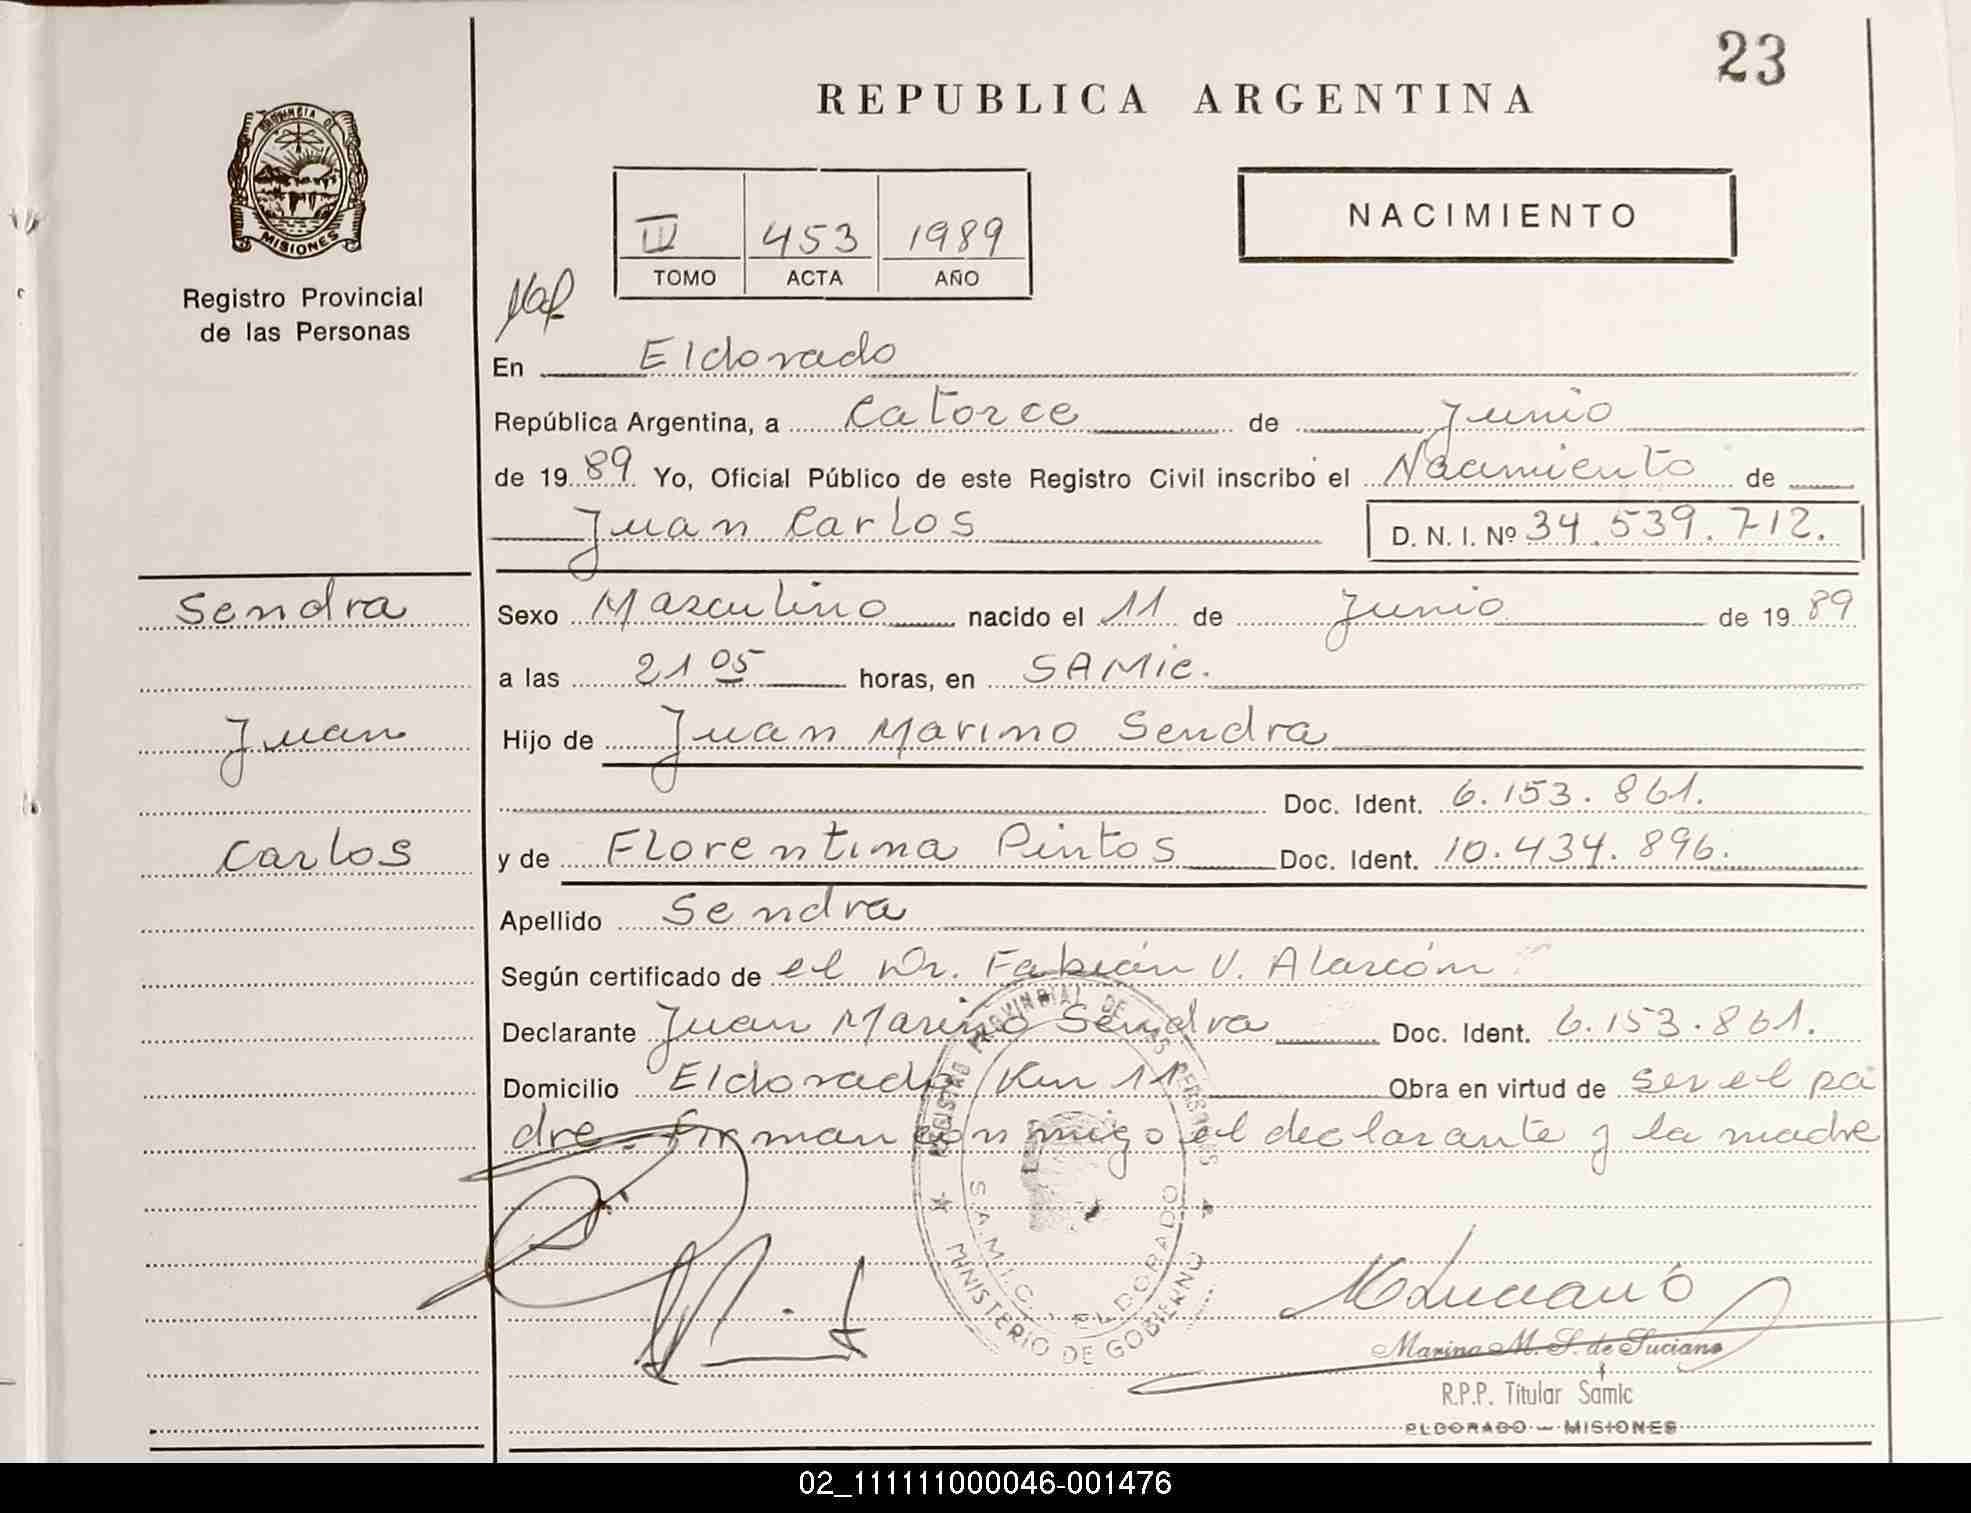 23
REPUBLICA ARGENTINA
PROVINCIA DE
MISIONES
Registro Provincial
de las Personas
III 453 1989
TOMO ACTA AÑO
NACIMIENTO
En Eldorado
República Argentina, a Catorce de Junio
de 1989 Yo, Oficial Público de este Registro Civil inscribo el Nacimiento de
Juan Carlos D. N. I. Nº 34.539.712.
Sendra
Juan
Carlos
Sexo Masculino nacido el 11 de Junio de 1989
a las 21 05 horas, en SAMic.
Hijo de Juan Marino Sendra
Doc. Ident. 6.153.861.
y de Florentina Pintos Doc. Ident. 10.434.896.
Apellido Sendra
Según certificado de el Dr. Fabián V. Alarcón
Declarante Juan Marino Sendra Doc. Ident. 6.153.861.
Domicilio Eldorado Km 11 Obra en virtud de ser el pa
dre. Firman conmigo el declarante y la madre
REGISTRO PROVINCIAL DE LAS PERSONAS
S.A.M.I.C. - ELDORADO
MINISTERIO DE GOBIERNO
MLuciano
Marina M. S. de Luciano
R.P.P. Titular Samic
ELDORADO - MISIONES
02_111111000046-001476